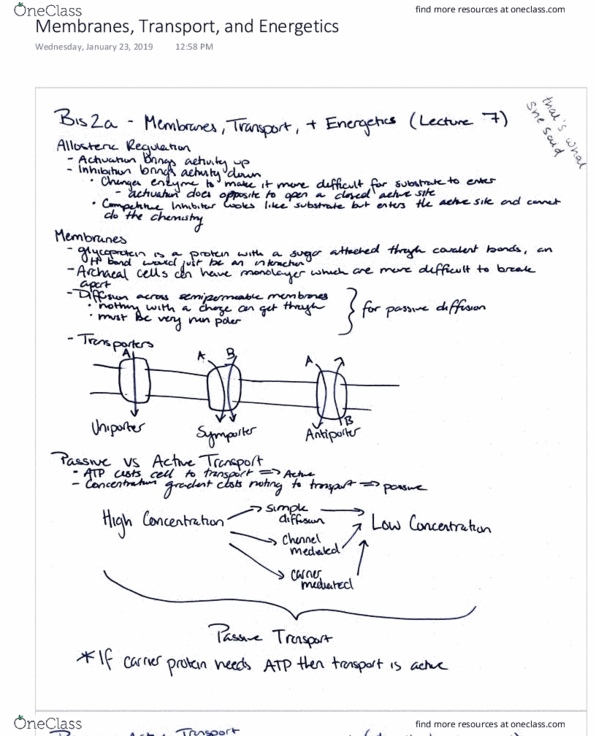 OneClass
find more resources at oneclass.com
Membranes, Transport, and Energetics
Wednesday, January 23, 2019 12:58 PM
that's what
she said
Bis2a - Membranes, Transport, + Energetics (Lecture 7)
Allosteric Regulation
- Activation brings activity up
- Inhibition brings activity down
• Changes enzyme to make it more difficult for substrate to enter
- activation does opposite to open a closed active site
• Competitive Inhibitor looks like substrate but enters the active site and cannot
do the chemistry
Membranes
- glycoprotein is a protein with a sugar attached through covalent bonds, an
H bond would just be an interaction
- Archaeal cells can have monolayer which are more difficult to break
apart
- Diffusion across semipermeable membranes
• nothing with a charge can get through
• must be very non polar
for passive diffusion
- Transporters
A A B A
B
Uniporter Symporter Antiporter
Passive vs Active Transport
- ATP costs cell to transport => Active
- Concentration gradient costs nothing to transport => passive
High Concentration
simple
diffusion
Low Concentration
Channel
mediated
carrier
mediated
Passive Transport
*If carrier protein needs ATP then transport is active
OneClass
find more resources at oneclass.com
Transport